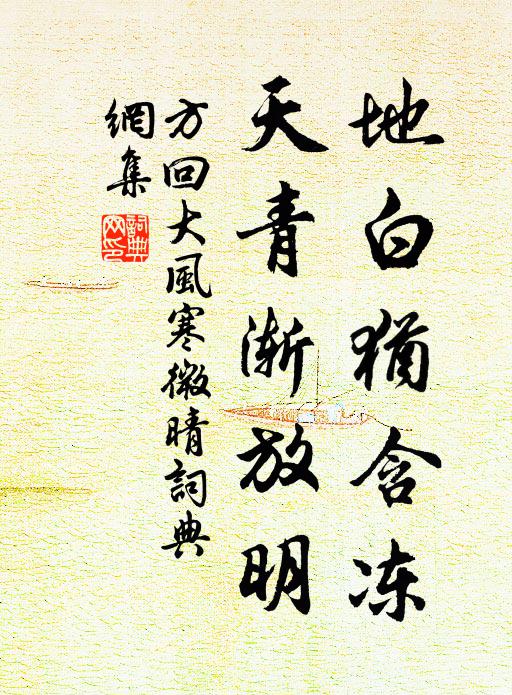 地白犹含冻
天青渐放明
方回大風寒微晴詞典
網集
詞典
网印